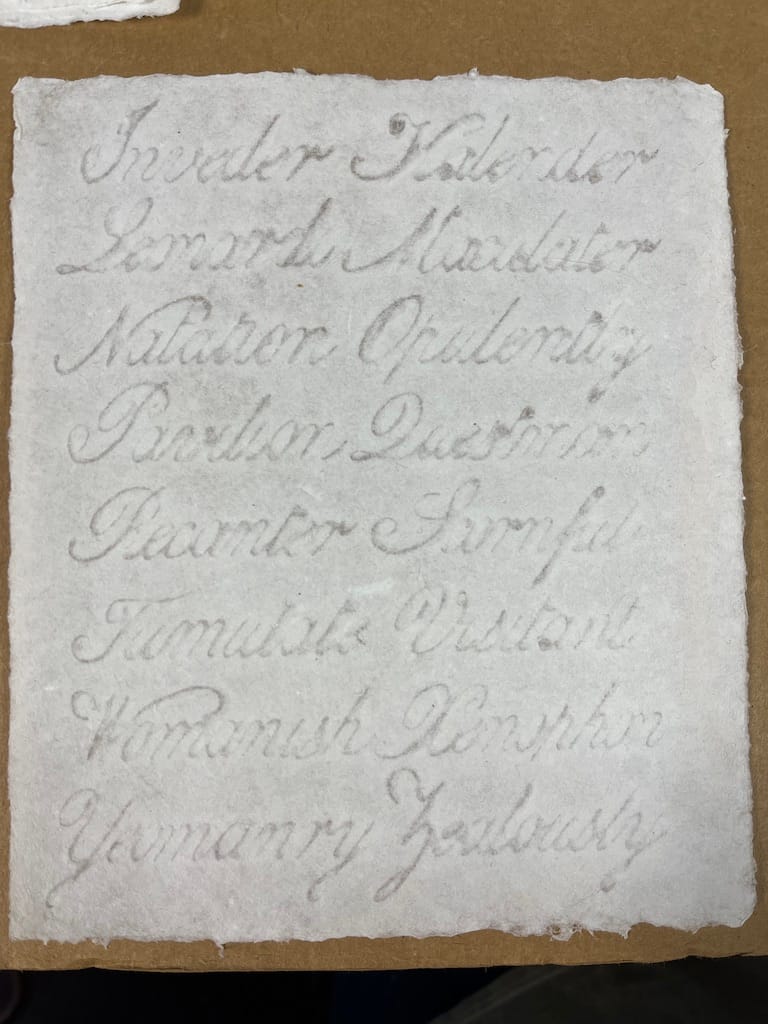 Invader Kalender
Lemards Mandator
Natation Opulently
Pavilion Questman
Recanter Surnful
Tumulate Visitant
Womanish Xenophon
Yeomanry Zealously